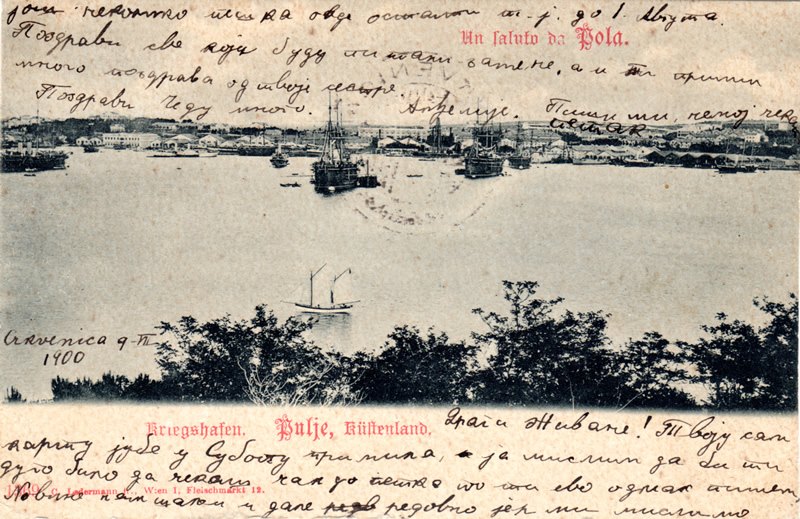 још неколико петка овде остати т.ј. до 1. Августа.
Поздрави све који буду питали за мене, а и ти прими
много поздрава од твоје сестре
Поздрави Чеду много. Анђелије. Пиши ми, немој чека
петак
Un saluto da Pola.
Crkvenica 9-II
1900
Kriegshafen. Pulje, Küstenland.
Драги Живане! Твоју сам
карту јубе у Суботу примила, ја мислим да би ти
дуго било да чекаш чак до петка то ти ево одмах пишем
Новине нам шаљи и даље редовно јер ми мислимо
C. Ledermann jr., Wien I, Fleischmarkt 12.